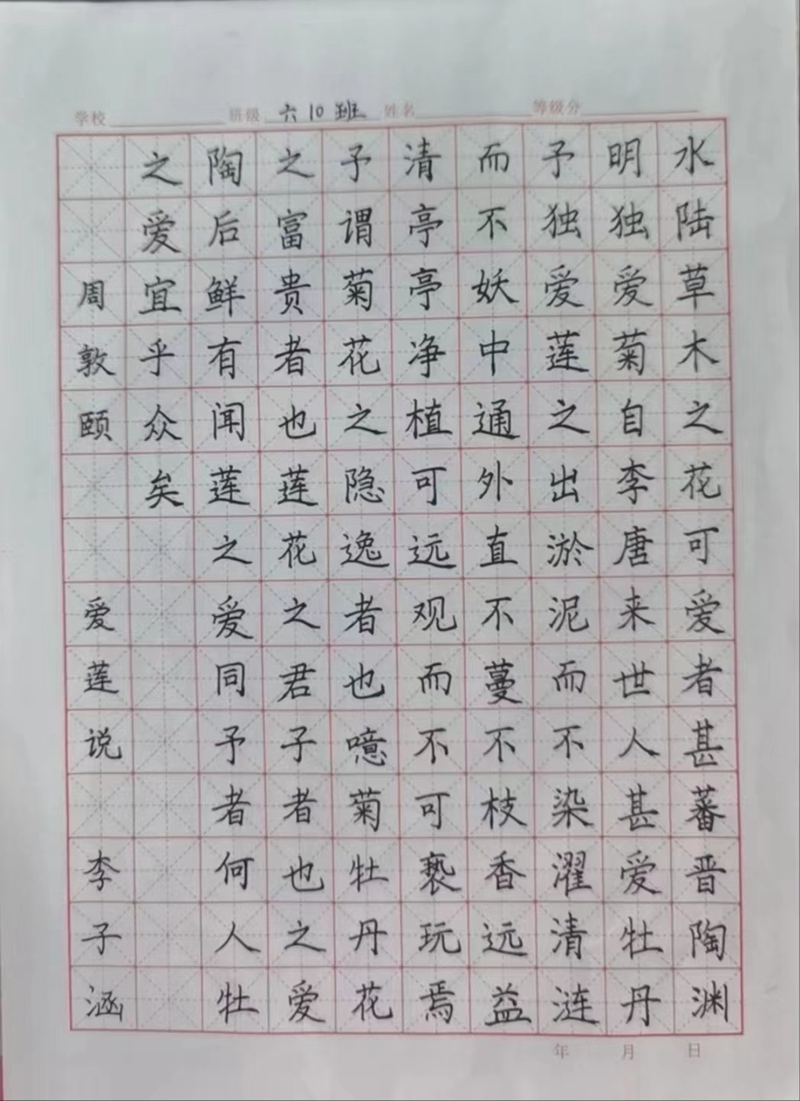 学校 班级 六10班 姓名 等级分
水陆草木之花可爱者甚蕃晋陶渊
明独爱菊自李唐来世人甚爱牡丹
予独爱莲之出淤泥而不染濯清涟
而不妖中通外直不蔓不枝香远益
清亭亭净植可远观而不可亵玩焉
予谓菊花之隐逸者也噫菊牡丹花
之富贵者也莲花之君子者也之爱
陶后鲜有闻莲之爱同予者何人牡
之爱宜乎众矣
周敦颐 爱莲说 李子涵
年 月 日